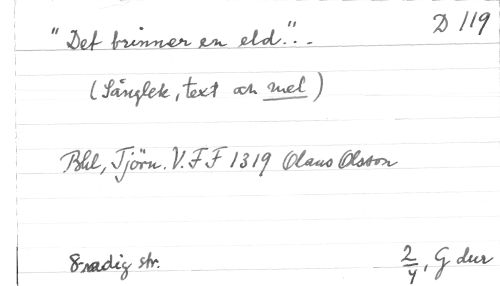 D 119
"Det brinner en eld"..
(Sånglek, text och mel)
Bhl, Tjörn. V.F.F 1319 Olaus Olsson
8-radig str.
2/4, G dur